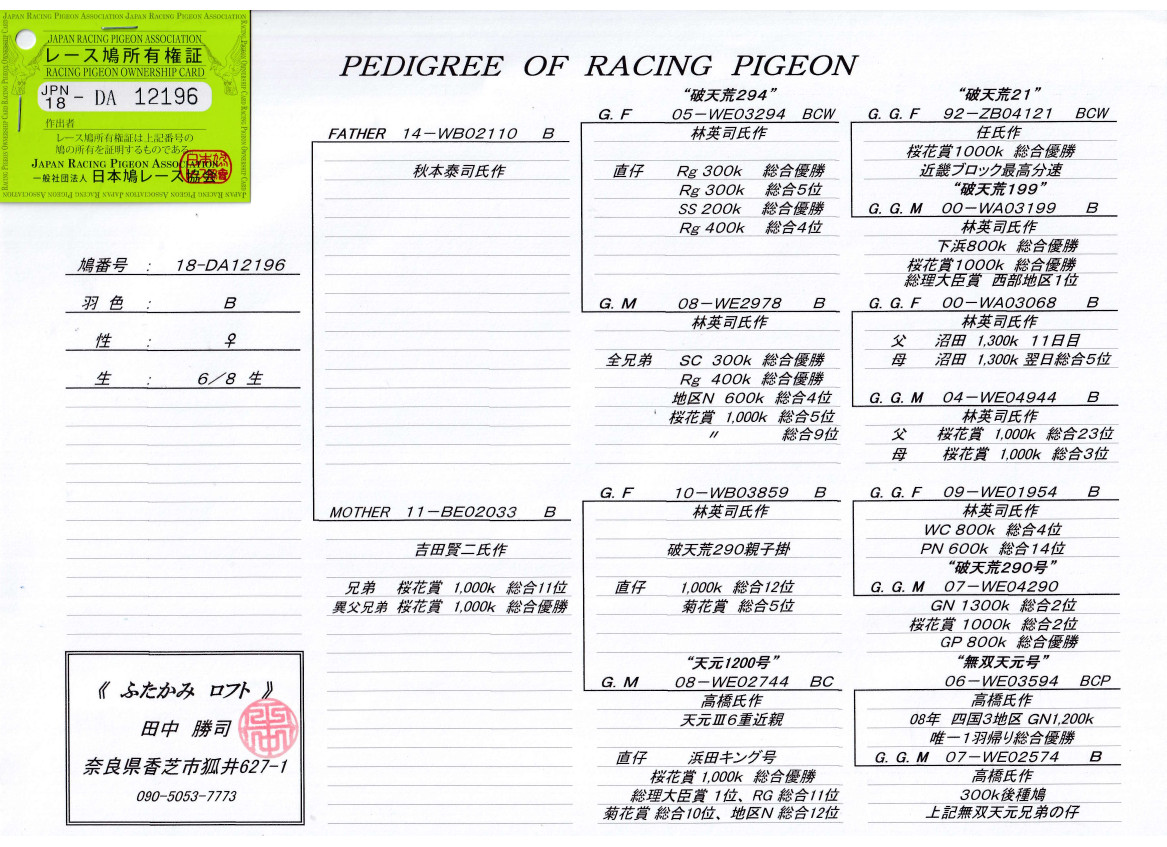 JAPAN RACING PIGEON ASSOCIATION JAPAN RACING PIGEON ASSOCIATION
JAPAN RACING PIGEON ASSOCIATION
レース鳩所有権証
RACING PIGEON OWNERSHIP CARD
JPN
18 - DA 12196
作出者
レース鳩所有権証は上記番号の
鳩の所有を証明するものである
JAPAN RACING PIGEON ASSOCIATION
一般社団法人 日本鳩レース協会
PEDIGREE OF RACING PIGEON
鳩番号 : 18-DA12196
羽色 : B
性 : ♀
生 : 6/8 生
FATHER 14-WB02110 B
秋本泰司氏作
MOTHER 11-BE02033 B
吉田賢二氏作
兄弟 桜花賞 1,000k 総合11位
異父兄弟 桜花賞 1,000k 総合優勝
"破天荒294"
G. F 05-WE03294 BCW
林英司氏作
直仔 Rg 300k 総合優勝
Rg 300k 総合5位
SS 200k 総合優勝
Rg 400k 総合4位
G. M 08-WE2978 B
林英司氏作
全兄弟 SC 300k 総合優勝
Rg 400k 総合優勝
地区N 600k 総合4位
桜花賞 1,000k 総合5位
〃 総合9位
G. F 10-WB03859 B
林英司氏作
破天荒290親子掛
直仔 1,000k 総合12位
菊花賞 総合5位
"天元1200号"
G. M 08-WE02744 BC
高橋氏作
天元Ⅲ6重近親
直仔 浜田キング号
桜花賞 1,000k 総合優勝
総理大臣賞 1位、RG 総合11位
菊花賞 総合10位、地区N 総合12位
"破天荒21"
G. G. F 92-ZB04121 BCW
任氏作
桜花賞1000k 総合優勝
近畿ブロック最高分速
"破天荒199"
G. G. M 00-WA03199 B
林英司氏作
下浜800k 総合優勝
桜花賞1000k 総合優勝
総理大臣賞 西部地区1位
G. G. F 00-WA03068 B
林英司氏作
父 沼田 1,300k 11日目
母 沼田 1,300k 翌日総合5位
G. G. M 04-WE04944 B
林英司氏作
父 桜花賞 1,000k 総合23位
母 桜花賞 1,000k 総合3位
G. G. F 09-WE01954 B
林英司氏作
WC 800k 総合4位
PN 600k 総合14位
"破天荒290号"
G. G. M 07-WE04290
GN 1300k 総合2位
桜花賞 1000k 総合2位
GP 800k 総合優勝
"無双天元号"
06-WE03594 BCP
高橋氏作
08年 四国3地区 GN1,200k
唯一1羽帰り総合優勝
G. G. M 07-WE02574 B
高橋氏作
300k後種鳩
上記無双天元兄弟の仔
《 ふたかみ ロフト 》
田中 勝司
奈良県香芝市狐井627-1
090-5053-7773